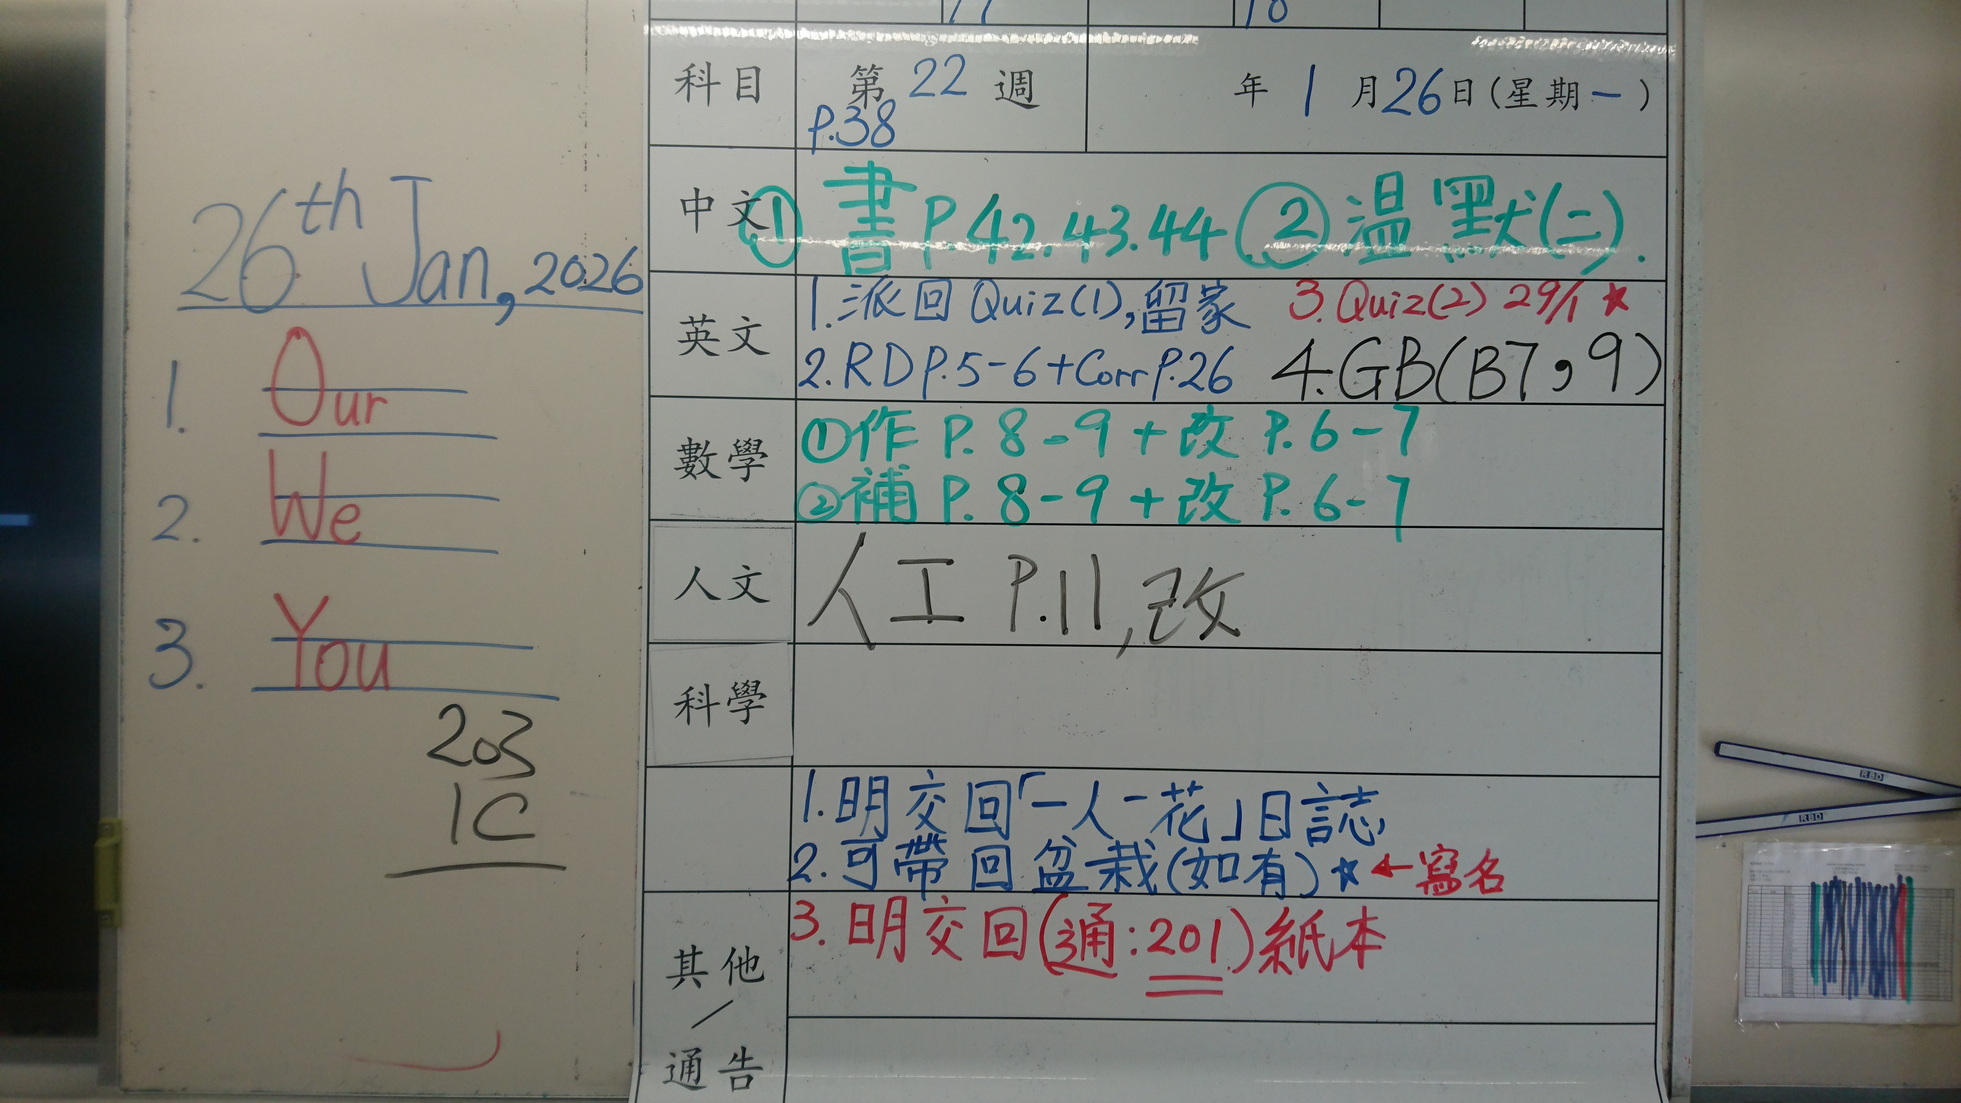 26th Jan, 2026
1. Our
2. We
3. You
203
1C
科目 第 22 週 年 1 月 26 日 (星期一)
P.38
中文 ① 書 P.42.43.44 ② 温默(二).
英文 1. 派回 Quiz(1), 留家 3. Quiz(2) 29/1 ★
2. RD P.5-6 + Corr P.26 4. GB(B7,9)
數學 ① 作 P. 8-9 + 改 P. 6-7
② 補 P. 8-9 + 改 P. 6-7
人文 人工 P.11, 改
科學
1. 明交回「一人一花」日誌
2. 可帶回盆栽(如有) ★ ← 寫名
3. 明交回(通:201)紙本
其他
/
通告
RBD
RBD